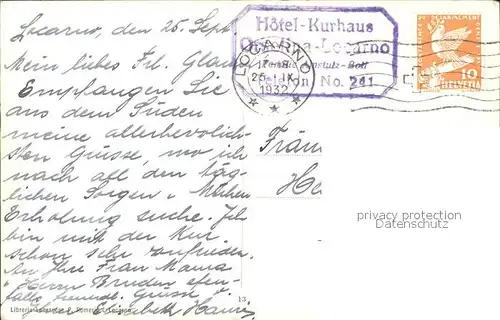 Locarno, den 25. Sept.
Mein liebes Frl.
Empfangen Sie
aus dem Süden
meine allerherzlich-
sten Grüsse, wo ich
nach all den täg-
lichen Sorgen u. Mühen
Erholung suche. Ich
bin mit der Kur
schon sehr zufrieden.
An Ihre Frau Mama
u. Herrn Bruder eben-
falls freundl. Grüsse
Elisabeth
Hôtel-Kurhaus
Locarno
Telefon No. 241
LOCARNO
25. IX.
1932
10
HELVETIA
Fräu
He
privacy protection
Datenschutz
13